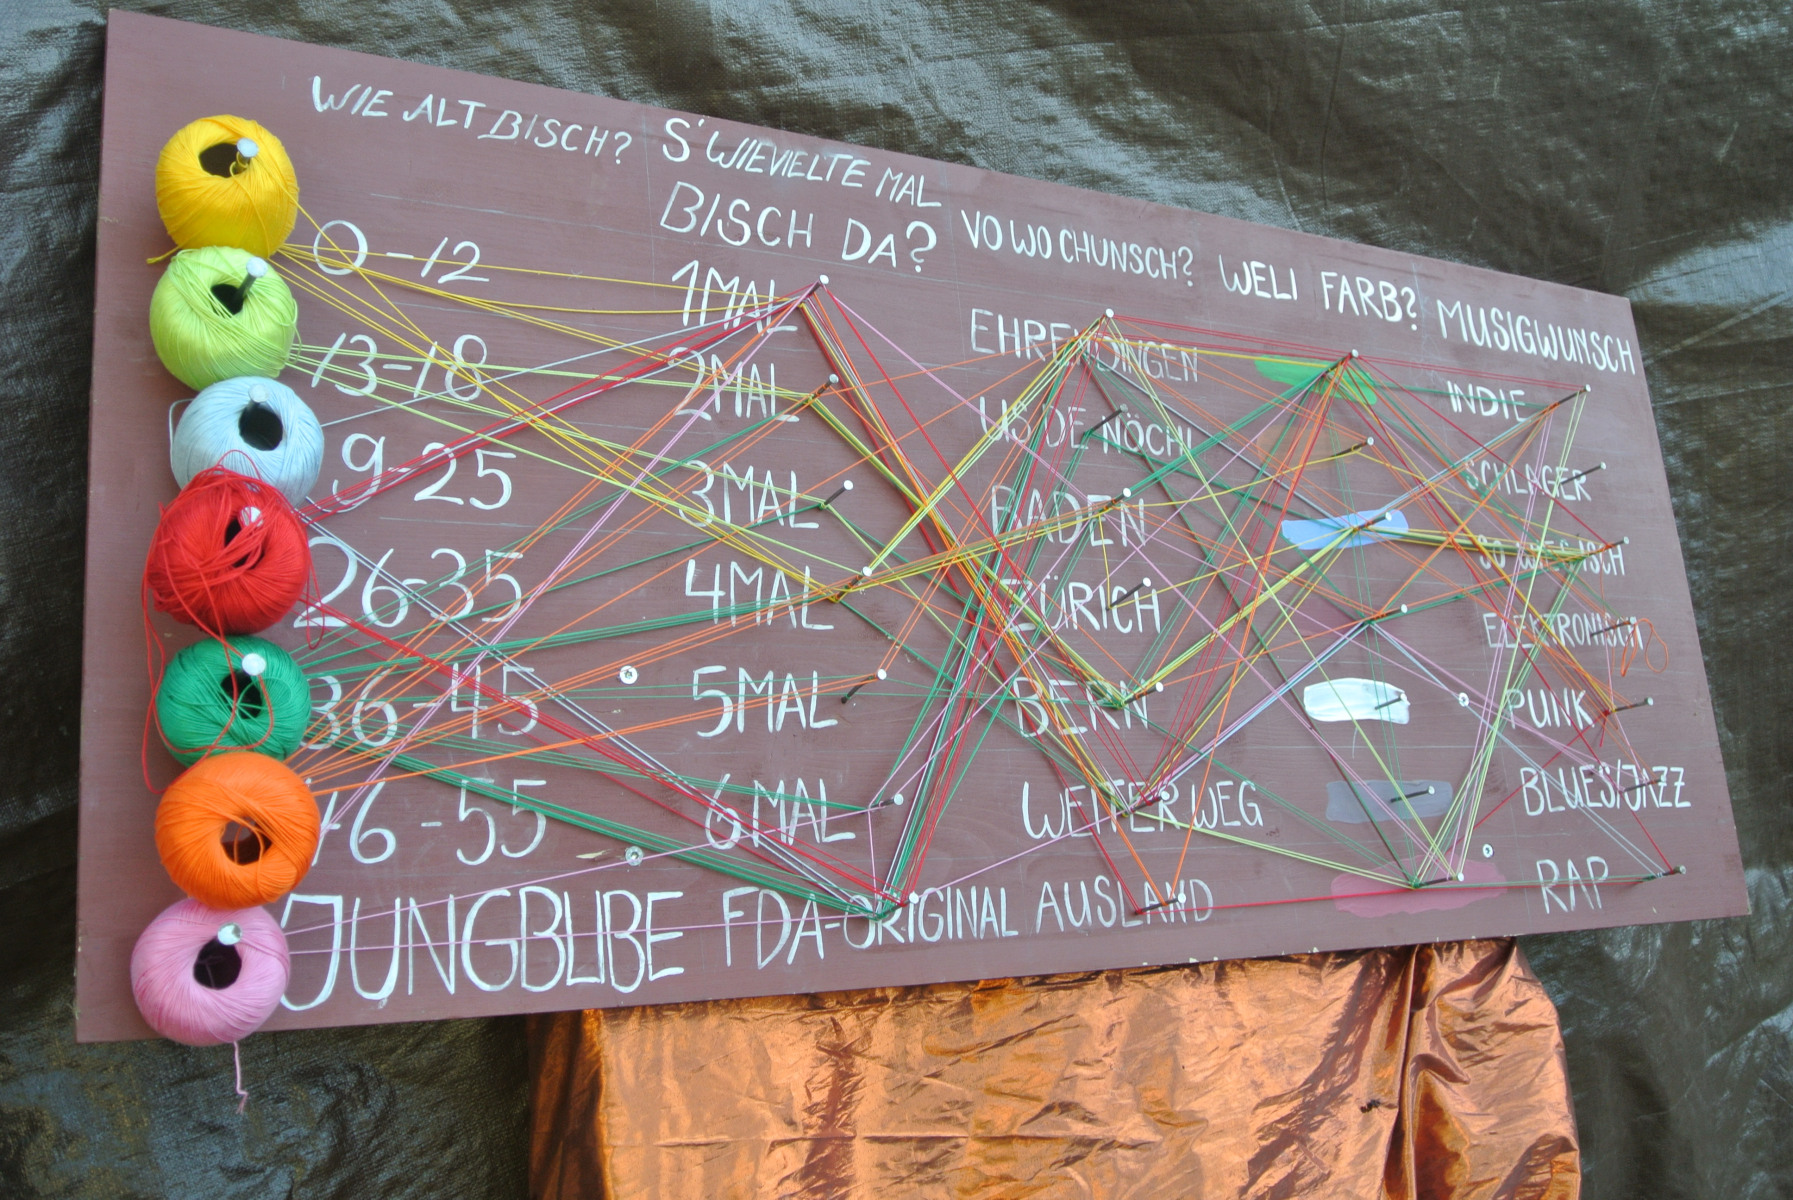 WIE ALT BISCH?
0-12
13-18
9-25
26-35
36-45
46-55
JUNGBUBE
S'WIEVIELTE MAL
BISCH DA?
1MAL
2MAL
3MAL
4MAL
5MAL
6MAL
FDA-ORIGINAL
VO WO CHUNSCH?
EHRENDINGEN
US DE NÖCHI
BADEN
ZÜRICH
BERN
WEITER WEG
AUSLAND
WELI FARB?
MUSIGWUNSCH
INDIE
SCHLAGER
ELEKTRONISCH
PUNK
BLUES/JAZZ
RAP